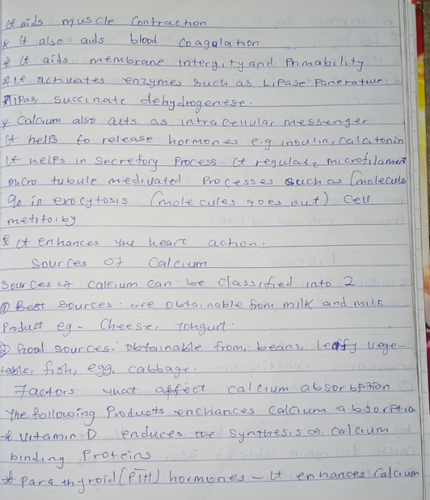 It aids muscle contraction
* It also aids blood coagulation
* It aids membrane intergity and Primability
* It activates enzymes such as Lipase Panerative
Lipas, succinate dehydrogenese.
* Calcium also acts as intracellular messenger
It helps to release hormones e.g insulin, Calcitonin
It helps in secretory Process. It regulate microfilament
micro tubule medivated Processes such as (molecule
go in exocytosis (molecules goes out) cell
* It enhances the heart action.
Sources of Calcium
Sources of calcium can be classified into 2
① Best sources: are obtainable from milk and milk
Product eg - Cheese, Yohgurt.
② Good sources: obtainable from, beans, leaffy vege-
table, fish, egg, cabbage.
Factors that affect calcium absorbption
The following Products enchances Calcium absorption
* Vitamin D enduces the synthesis of calcium
binding Proteins
* Para thyroid (PTH) hormones - It enhances Calcium